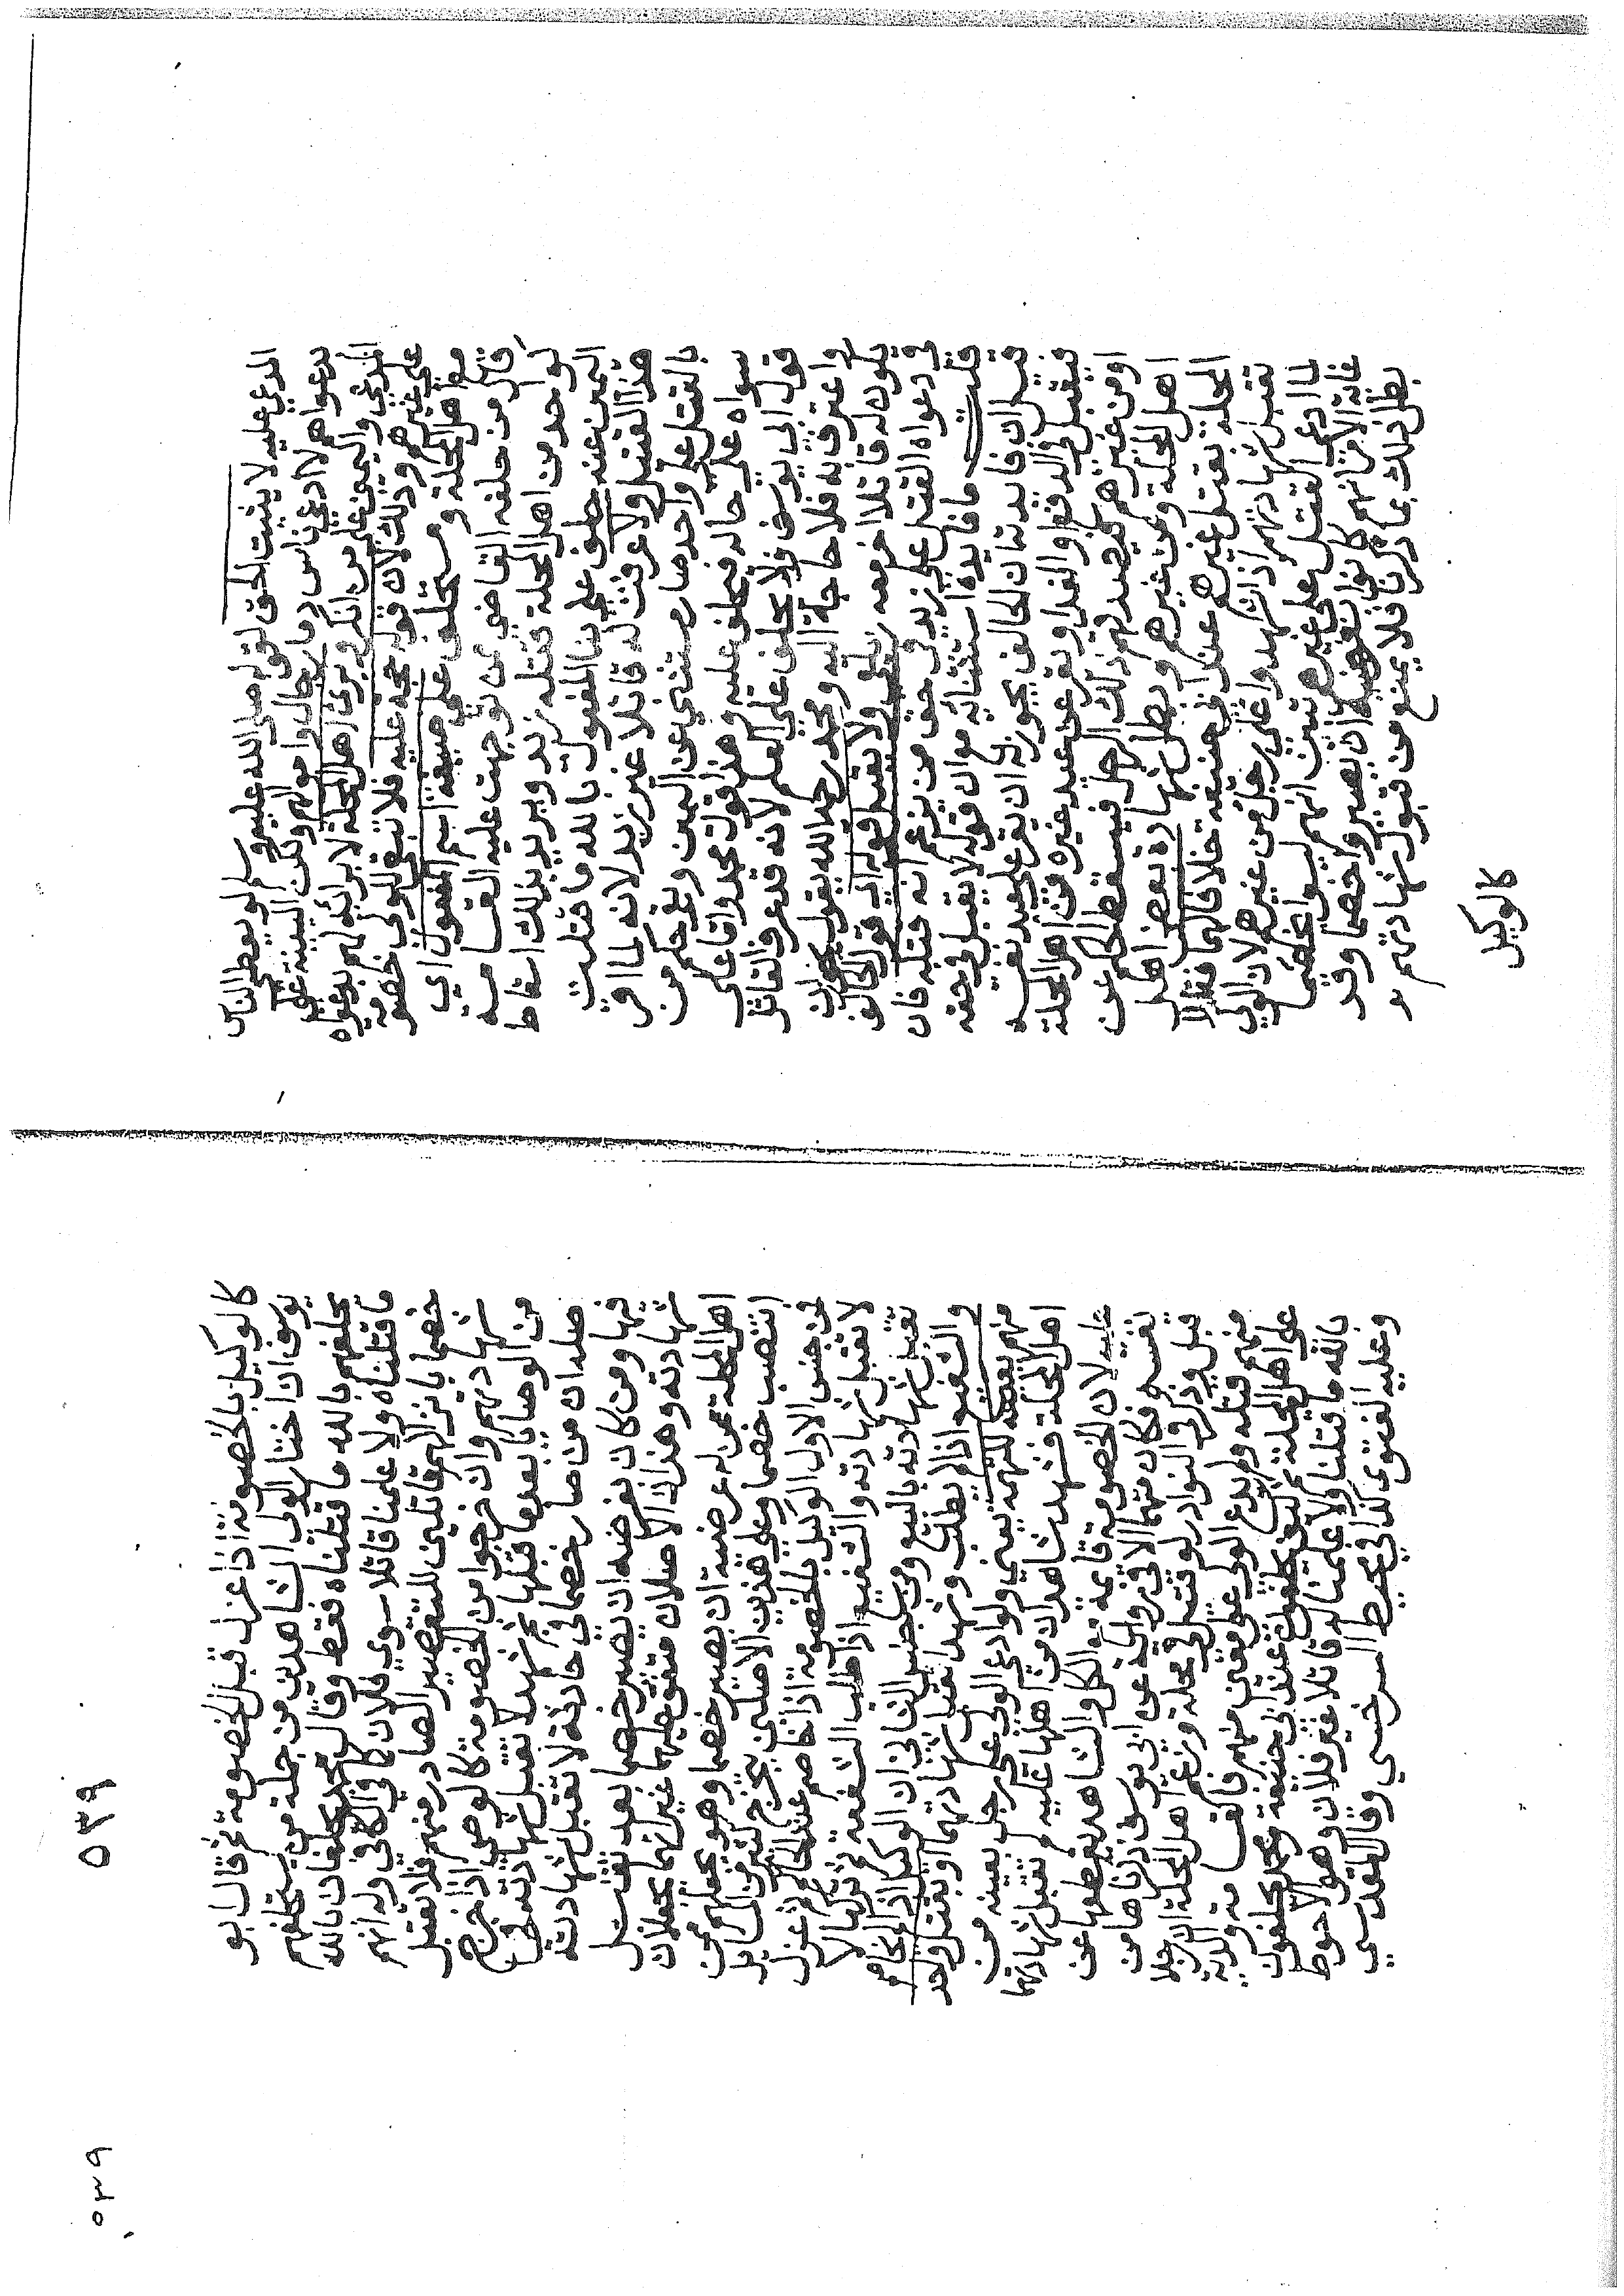 المدعي عليه لا يثبت الحق لقوله صلى الله عليه وسلم لو يعطى الناس
بدعواهم لادعى ناس دما رجال واموالهم ولكن البينة على
المدعي واليمين على من انكر وبرئ اهل المحلة لا برائهم بدعواه
على غيرهم وذلك لان قوله حجة عليه فلا تبقى للولي خصومة
مع اهل المحلة ومستحلف على صيغة اسم المفعول اي
قال من حلفه القاضي عن توجهت عليه القسامة
لواحد من اهل المحلة قتله زيد ويريد بذلك اسقاط
اليمين عنه حلف على بنا المفعول بالله ما قتلت
هذا القتيل ولا عرفت له قاتلا غير زيد لانه لما اقر
بالقتل على واحد صار مستثني عن اليمين وبقي حكم من
سواه على حاله فيحلف عليه وهذا قول محمد واما على
قول ابي يوسف فلا يحلف على العلم لانه قد عرف القاتل
واعترف به فلا حاجة اليه ومحمد رحمه الله يقول يجوز ان
يكون له قاتلا اخر معه زيلعي ولا يقبل قوله اي قول الحالف
في دعواه القتل على زيد في حق من يزعم انه قتله فان
قلت ما فايدة استثنايه مع ان قوله لا يقبل في حقه
قيل ان فايدته ان الحالف يجوز له ان يقر على عبد نفسه
فيقبل في الدفع او الفدا او يقر عن عبد غيره من اهل المحلة
او من غيرهم فيصدقهم ذلك الرجل فيسقط الحكم عن
اهل المحلة وعن غيرهم وبطل شهادة بعض اهل
المحلة بقتل غيرهم عند ابي حنيفة خلافا لهما فقالا
تقبل شهادتهم اذا شهدوا على رجل من غيرهم لان الولي
لما ادعى القتل على غيرهم تبين انهم ليسوا بخصما
غاية الامر انهم كانوا بعرضية ان يصيروا خصما وقد
بطل ذلك بما ذكرنا فلا يمنع من قبول شهادتهم
كالوكيل
٥٣٩
٥٣٩
كالوكيل بالخصومة اذا عزل قبل الخصومة ثم قال ابو
يوسف ان اختار الولي الشاهدين من جملة من يستحلفهم
يحلفهم بالله ما قتلناه فقط وقال محمد يحلفان بالله
ما قتلناه ولا علمنا قاتلا سوى فلان كما في الكافي وله انهم
خصما بانزالهم قاتلين للتقصير الصادر منهم فلا تقبل
شهادتهم وان خرجوا من الخصومة كالوصي اذا خرج
من الوصايا بعدما قبلها ثم شهد لا تقبل شهادته
اصله ان من صار خصما في حادثة لا تقبل شهادته
فيها ومن كان بعرضه ان يصير خصما بعد تقبل
شهادته وهذان الاصلان متفق عليهما غير انهما يجعلان
اهل المحلة ممن له عرضية ان يصير خصما وهو يجعلهم ممن
انتصب خصما وعلى هذين الاصلين يخرج كثير من المسايل
فمن جنس الاول الوكيل بالخصومة اذا خاصم عند الحاكم ثم عزل
لا تقبل شهادته والشفيع اذا طلب الشفعة ثم تركها لا
تقبل شهادته بالبيع ومن جنس الثاني ان الوكيل اذا لم يخاصم
والشفيع اذا لم يطلب وشهدا تقبل شهادتهما او بقتل واحد
منهم بعينه للتهمة يعني ولو ادعى الولي على رجل بعينه من
اهل المحلة فشهد شاهدان من اهلها عليه لم تقبل شهادتهما
عليه لان الخصومة قايمة مع الكل والشاهد يقطعها عن
نفسه فكان متهما الا في رواية عن ابي يوسف ذكرناها من
قبل وذكر في النوادر لو قتيل في محلة وزعم اهل المحلة ان رجلا
منهم قتله ولم يدع الولي على معين منهم فالقسامة والدية
على اهل المحلة ثم كيف يحلفون عند ابي حنيفة ومحمد يحلفون
بالله ما قتلنا ولا علمنا له قاتلا غير فلان وهو الاحوط
وعليه الفتوى كذا في محيط السرخسي وقال المقدسي